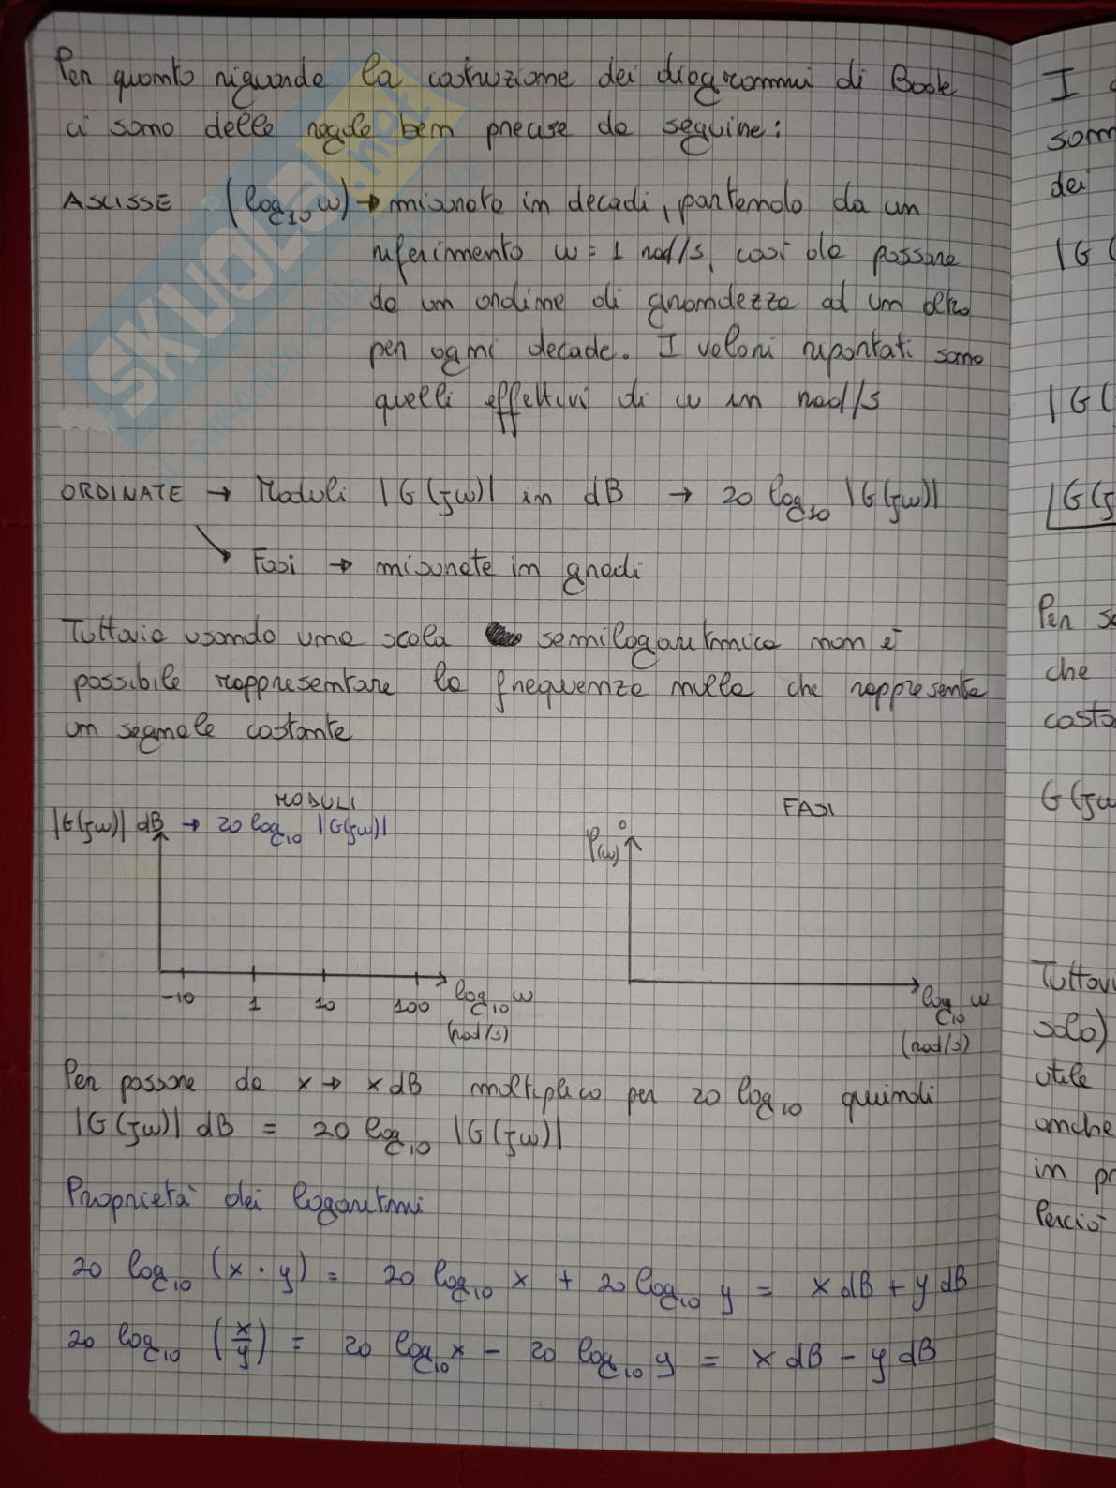 Per quanto riguarda la costruzione dei diagrammi di Bode
ci sono delle regole bem precise da seguire:
ASCISSE (log₁₀ ω) → misurate in decadi, partendo da un
riferimento ω = 1 rad/s, così da passare
da un ordine di grandezza ad un altro
per ogni decade. I valori riportati sono
quelli effettivi di ω in rad/s
ORDINATE → Moduli |G(jω)| in dB → 20 log₁₀ |G(jω)|
↘ Fasi → misurate in gradi
Tuttavia usando una scala semilogaritmica non è
possibile rappresentare la frequenza nulla che rappresenta
un segnale costante
MODULI
|G(jω)| dB → 20 log₁₀ |G(jω)|
-10 1 10 100 log₁₀ ω
(rad/s)
FASI
φ(ω) °
log₁₀ ω
(rad/s)
Per passare da x → x dB moltiplico per 20 log₁₀ quindi
|G(jω)| dB = 20 log₁₀ |G(jω)|
Proprietà dei logaritmi
20 log₁₀ (x · y) = 20 log₁₀ x + 20 log₁₀ y = x dB + y dB
20 log₁₀ (x/y) = 20 log₁₀ x − 20 log₁₀ y = x dB − y dB
I
som
dei
|G(
|G(
|G(j
Per s
che
costa
G(jω
Tuttav
solo)
utile
anche
in pr
Perciò
SKUOLA.net